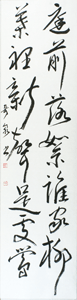 庭前落絮誰家柳
葉裡新聲是處鶯